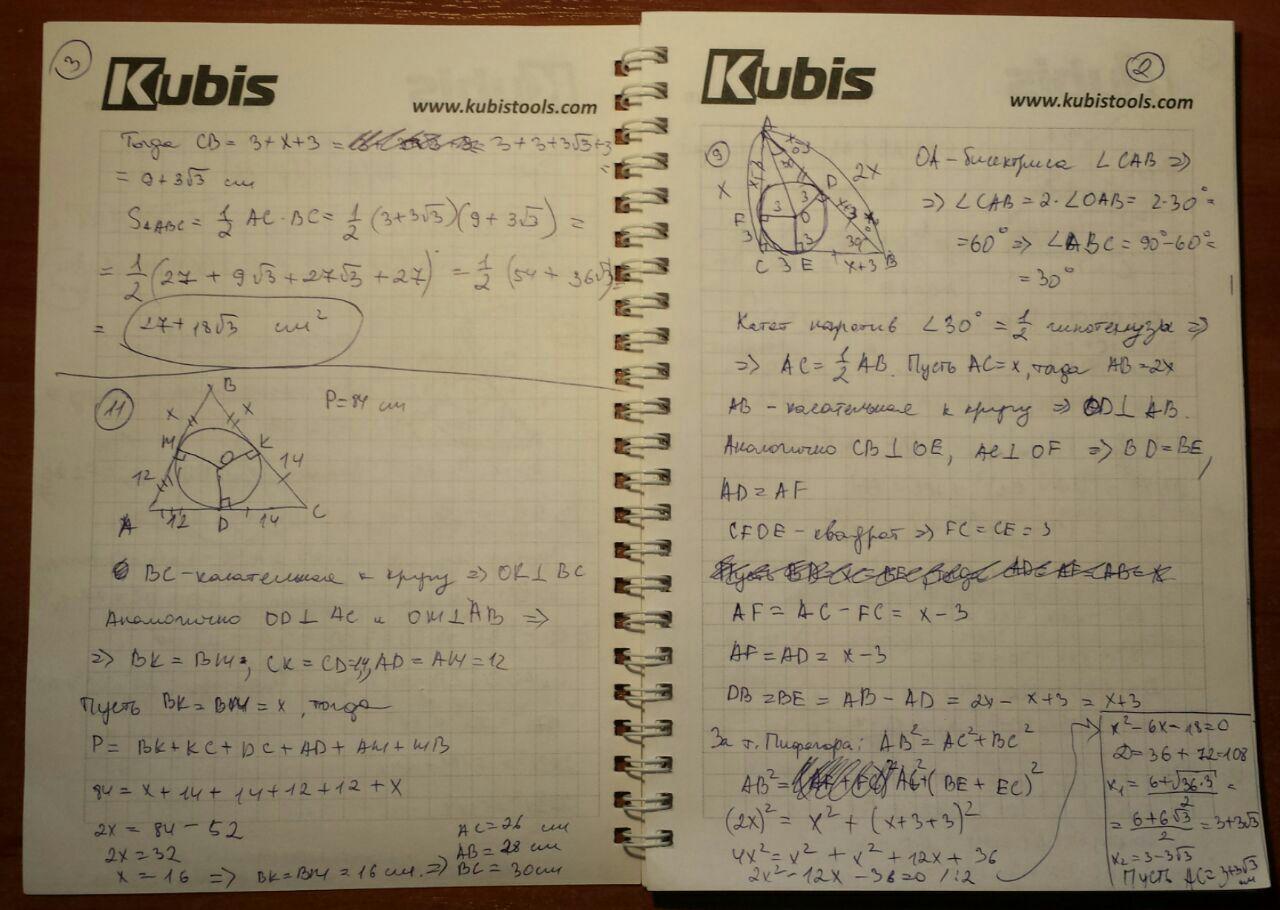 3
Kubis
www.kubistools.com
Тогда CB = 3 + x + 3 = 3 + 3 + 3√3 + 3 =
= 9 + 3√3 см
S△ABC = 1/2 AC · BC = 1/2 (3+3√3)(9 + 3√3) =
= 1/2 (27 + 9√3 + 27√3 + 27) = 1/2 (54 + 36√3) =
= 27 + 18√3 см²
11
B
P = 84 см
x x
M K
O
12 14
A 12 D 14 C
BC - касательная к кругу => OK ⊥ BC
Аналогично OD ⊥ AC и OM ⊥ AB =>
=> BK = BM, CK = CD = 14, AD = AM = 12
Пусть BK = BM = x, тогда
P = BK + KC + DC + AD + AM + MB
84 = x + 14 + 14 + 12 + 12 + x
2x = 84 - 52
2x = 32
x = 16 => BK = BM = 16 см. =>
AC = 26 см
AB = 28 см
BC = 30 см
2
Kubis
www.kubistools.com
9
A
x 2x
D
3
F 3 O x+3
3 3 30°
C 3 E x+3 B
OA - бисектриса ∠CAB =>
=> ∠CAB = 2·∠OAB = 2·30° =
= 60° => ∠ABC = 90° - 60° =
= 30°
Катет напротив ∠30° = 1/2 гипотенузы =>
=> AC = 1/2 AB. Пусть AC = x, тогда AB = 2x
AB - касательная к кругу => OD ⊥ AB.
Аналогично CB ⊥ OE, AC ⊥ OF => BD = BE,
AD = AF
CFOE - квадрат => FC = CE = 3
AF = AC - FC = x - 3
AF = AD = x - 3
DB = BE = AB - AD = 2x - x + 3 = x + 3
За т. Пифагора: AB² = AC² + BC²
AB² = AC² + (BE + EC)²
(2x)² = x² + (x + 3 + 3)²
4x² = x² + x² + 12x + 36
2x² - 12x - 36 = 0 /:2
x² - 6x - 18 = 0
D = 36 + 72 = 108
x₁ = (6 + √36·3)/2 =
= (6 + 6√3)/2 = 3 + 3√3
x₂ = 3 - 3√3
Пусть AC = 3 + 3√3 см